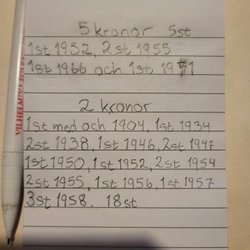 5 kronor 5st
1st 1952, 2st 1955
1st 1966 och 1st 1971
2 kronor
1st med och 1904, 1st 1934
2st 1938, 1st 1946, 2st 1947
1st 1950, 1st 1952, 2st 1954
2st 1955, 1st 1956, 1st 1957
3st 1958, 18st